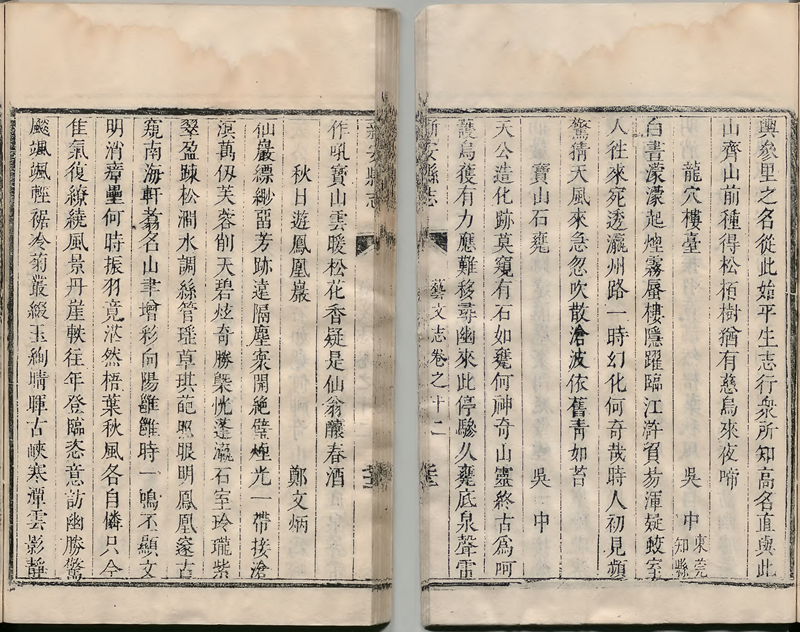 興參里之名從此始平生志行衆所知高名直與此
山齊山前種得松栢樹猶有慈烏來夜啼
龍穴樓臺 吳中 東莞知縣
白晝濛濛起煙霧蜃樓隱躍臨江滸貿易渾疑蛟室
人往來宛透瀛州路一時幻化何奇哉時人初見頻
驚猜天風來急忽吹散滄波依舊青如苔
寶山石甕 吳中
天公造化跡莫窺有石如甕何神奇山靈終古爲呵
護烏獲有力應難移尋幽來此停驂久甕底泉聲雷
新安縣志 藝文志卷之十二
新安縣志
作吼寶山雲暖松花香疑是仙翁釀春酒
秋日遊鳳凰巖 鄭文炳
仙巖縹緲留芳跡遠隔塵寰開絕壁煙光一帶接滄
溟萬仭芙蓉削天碧炫奇勝槩恍蓬瀛石室玲瓏紫
翠盈踈松澗水調絲管瑤草琪葩照眼明鳳凰邃古
窺南海軒翥名山聿增彩向陽雝雝時一鳴丕顯文
明消瘴壘何時振羽竟茫然梧葉秋風各自憐只今
佳氣復繚繞風景丹崖軼往年登臨恣意訪幽勝驚
飈颯颯輕裾冷菊叢綴玉絢晴暉古峽寒潭雲影靜